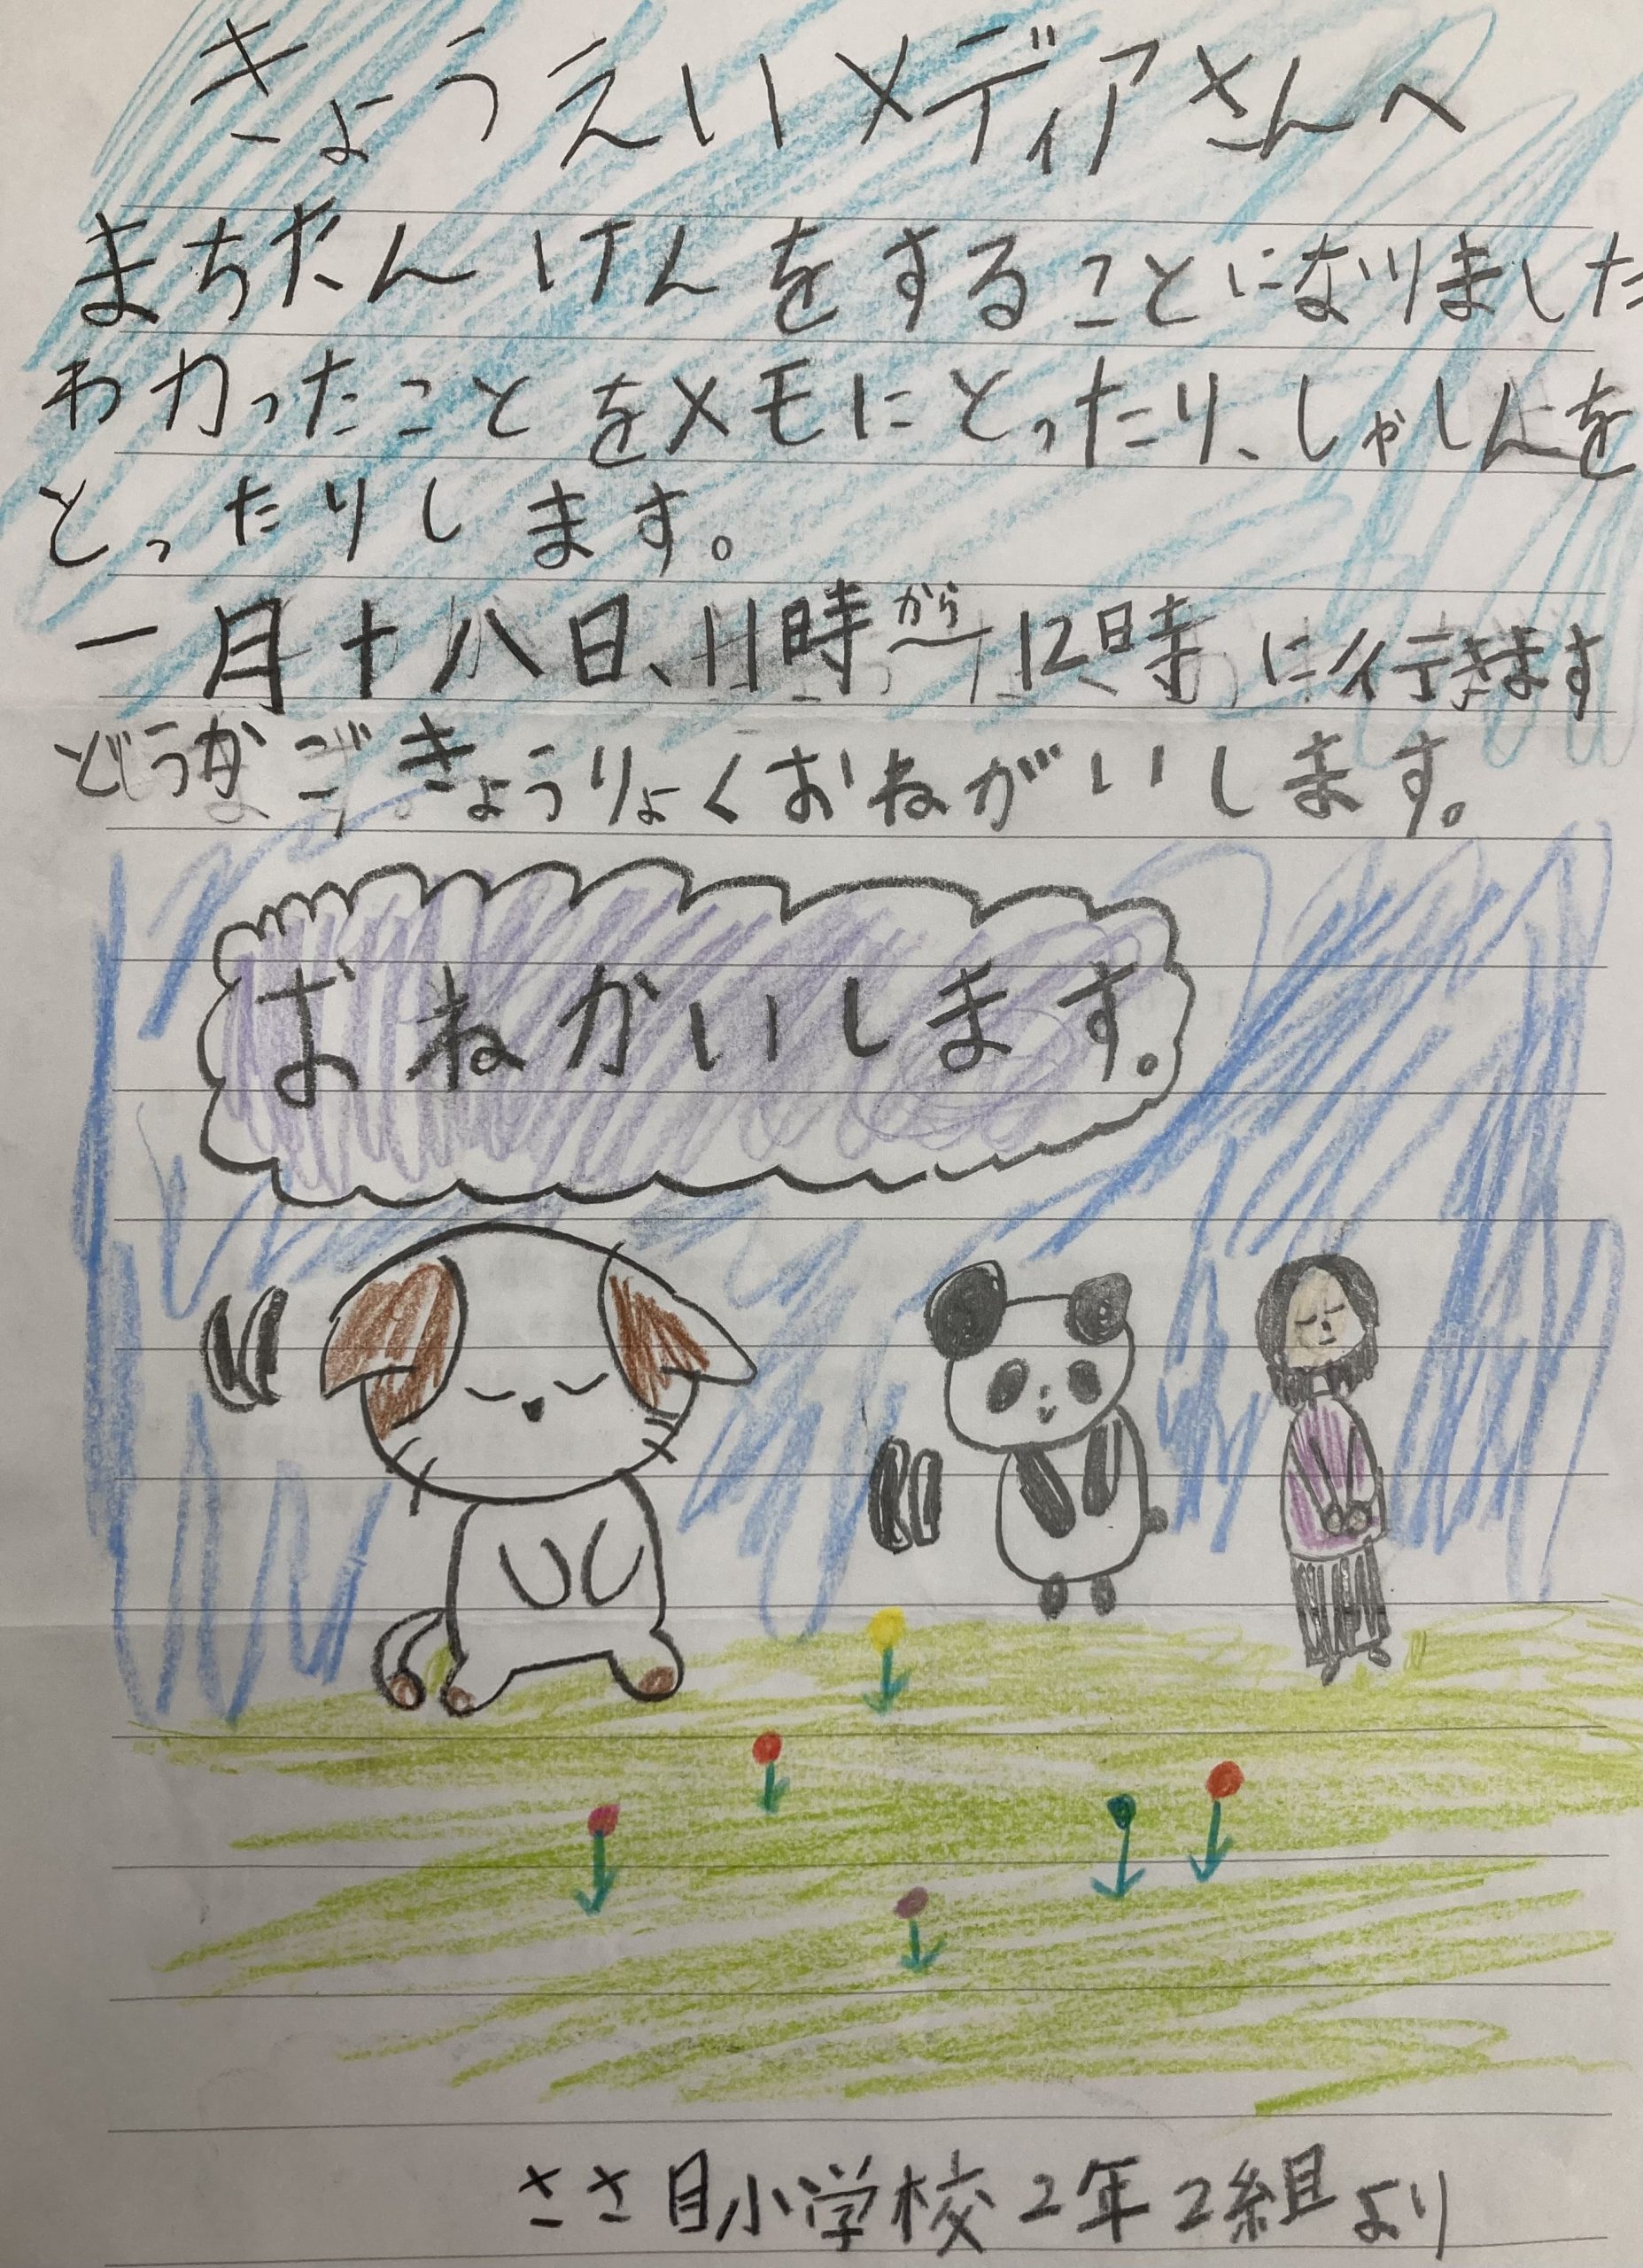 きょうえいメディアさんへ
まちたんけんをすることになりました
わかったことをメモにとったり、しゃしんを
とったりします。
一月十八日、11時から12時に行きます
どうかごきょうりょくおねがいします。
おねかいします。
ささ目小学校2年2組より